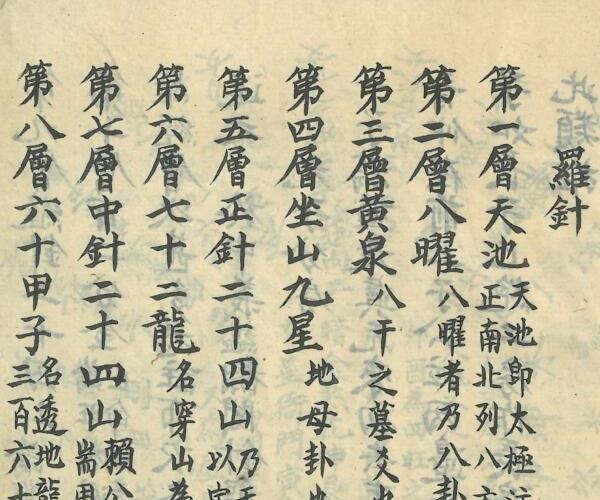 羅針
第一層天池天池即太極
正南北列八
第二層八曜八曜者乃八卦
第三層黃泉八干之墓爻也
第四層坐山九星地母卦也
第五層正針二十四山乃
以定
第六層七十二龍名穿山為
第七層中針二十四山賴公
耑用
第八層六十甲子名透地龍
三百六十